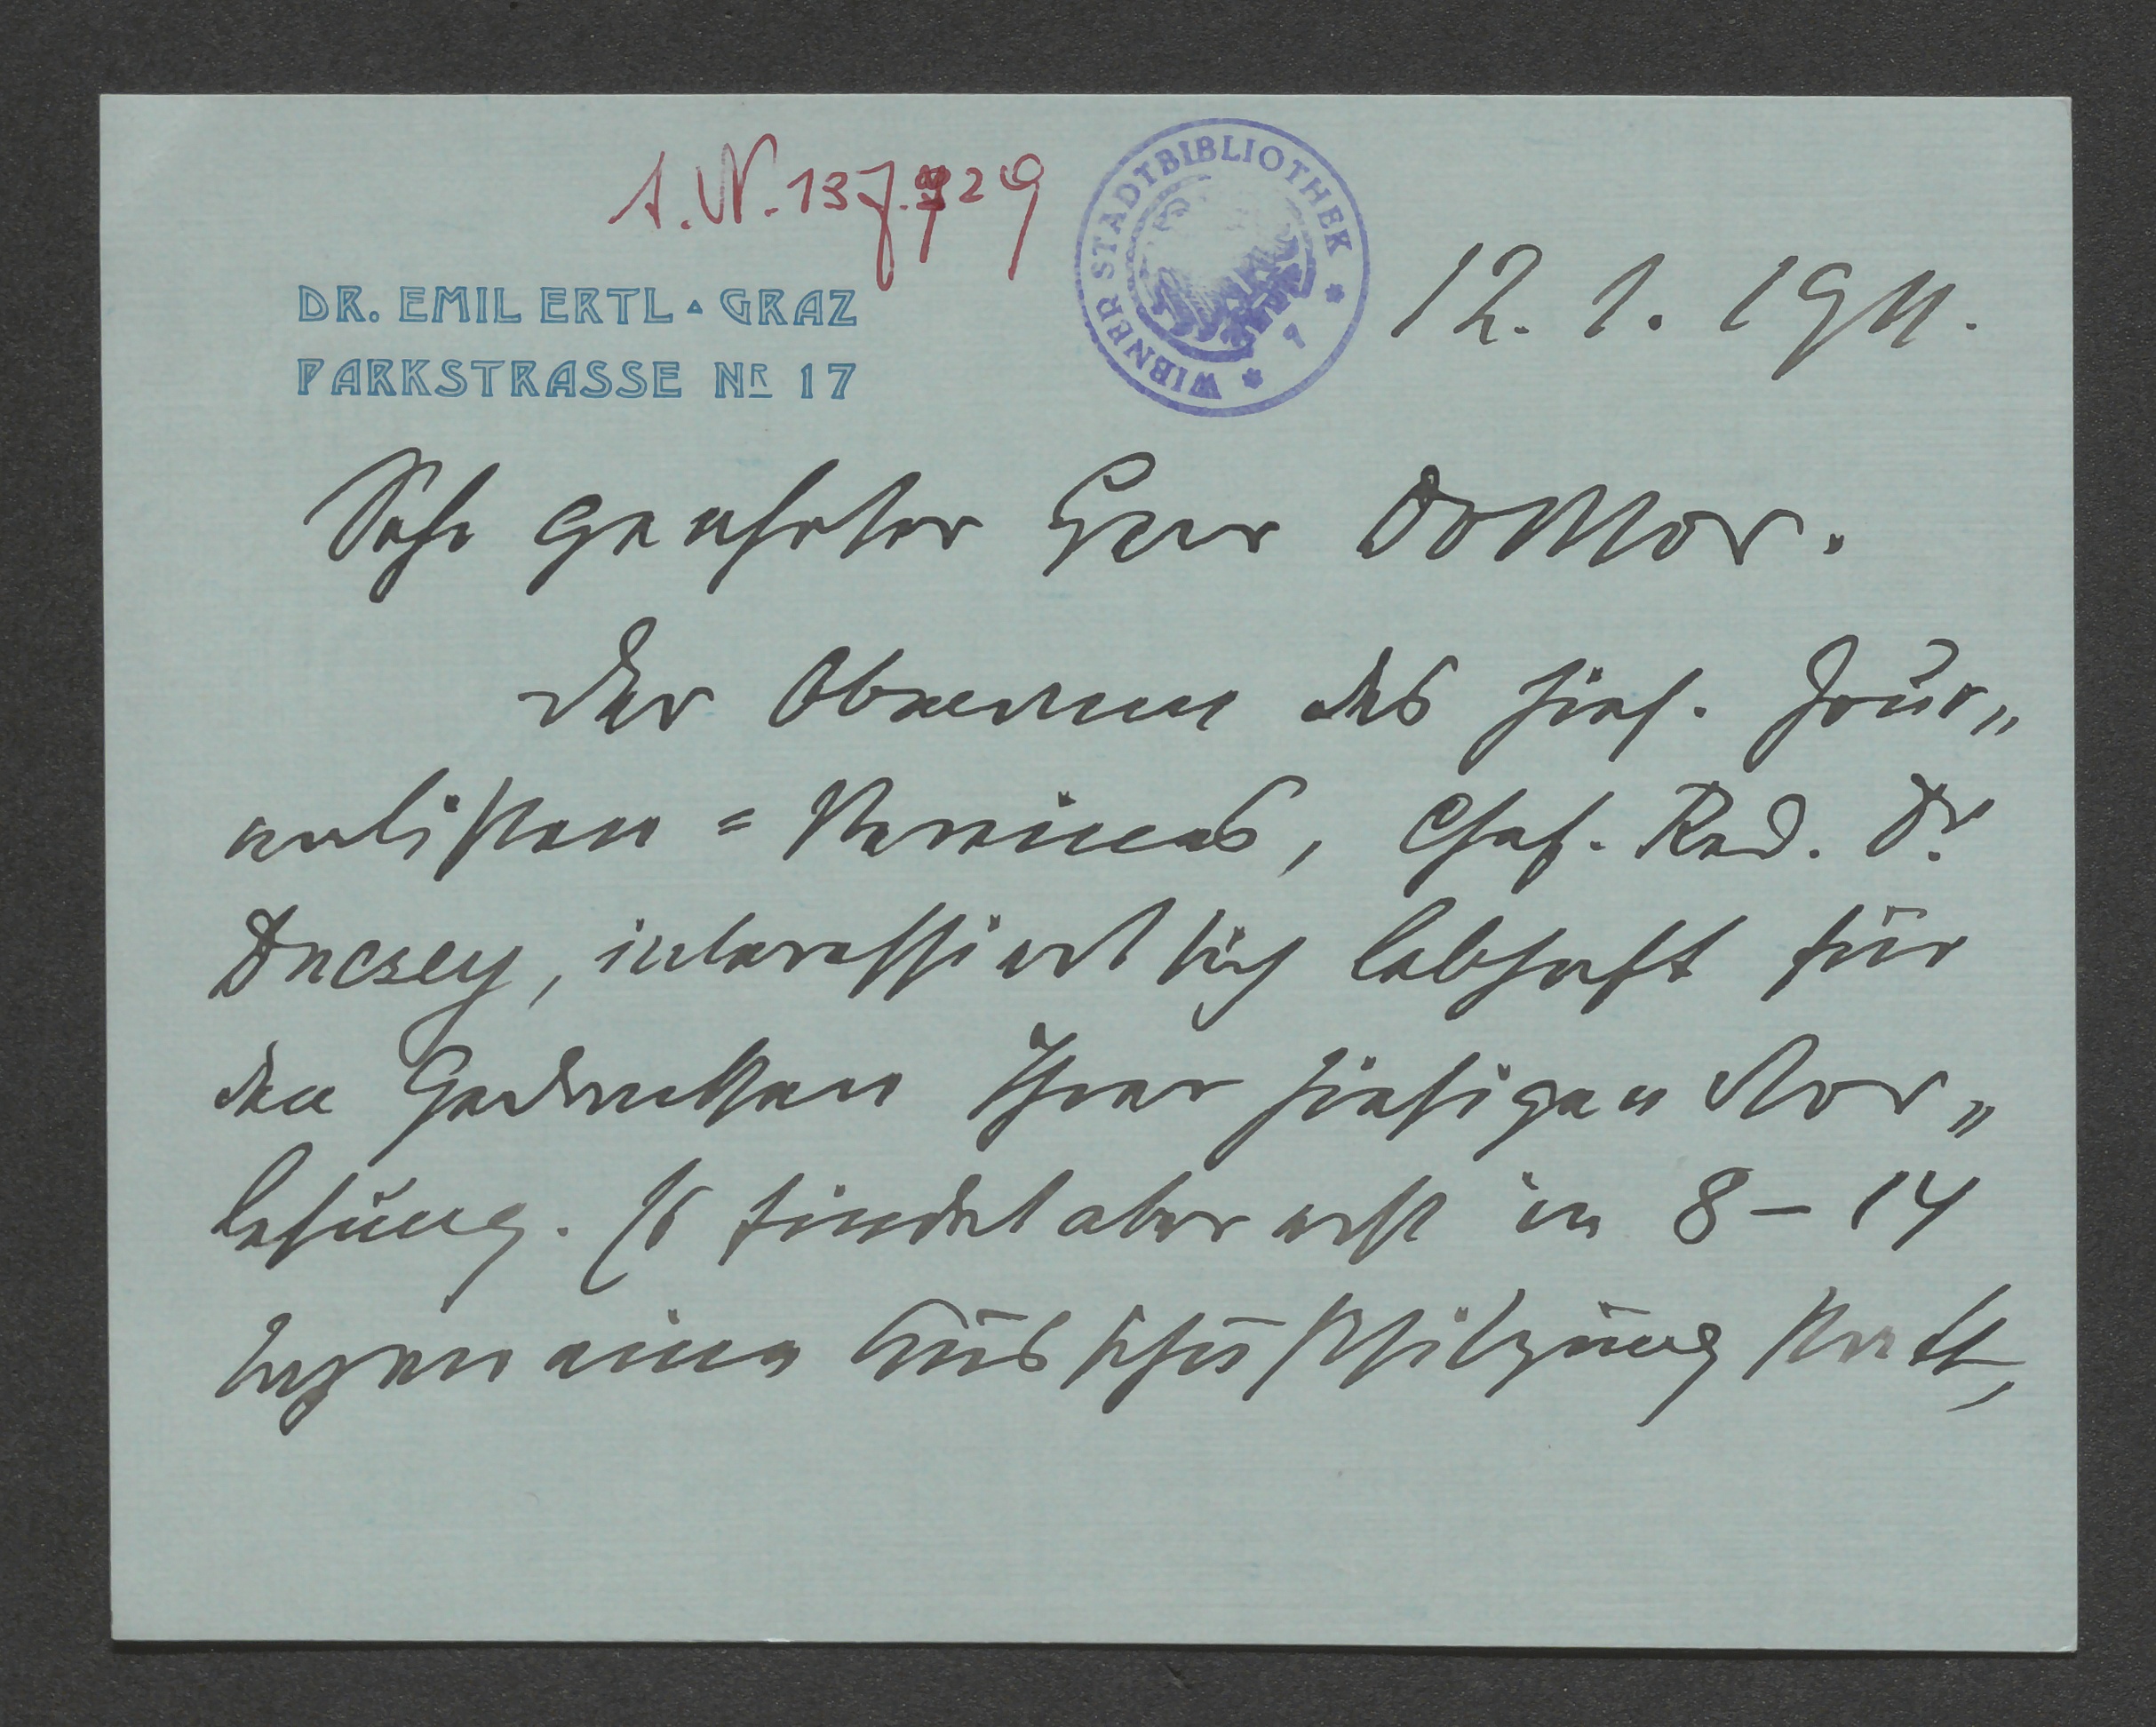 I.N. 137.929
WIENER STADTBIBLIOTHEK
DR. EMIL ERTL ▲ GRAZ
PARKSTRASSE NR 17
12. 1. 1911.
Sehr geehrter Herr Doktor.
Der Obmann des hies. Jour„
nalisten = Vereines, Chef. Red. Dr.
Decsey, interessiert sich lebhaft für
den Gedanken Ihrer hiesigen Vor„
lesung. Es findet aber erst in 8 – 14
Tagen eine Ausschußsitzung statt,